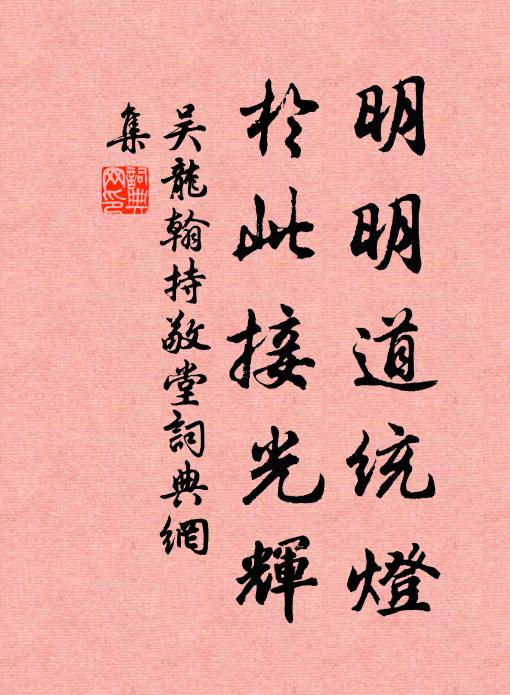 明明道統燈
於此接光輝
吳龍翰持敬堂詞典網
集
詞典網印